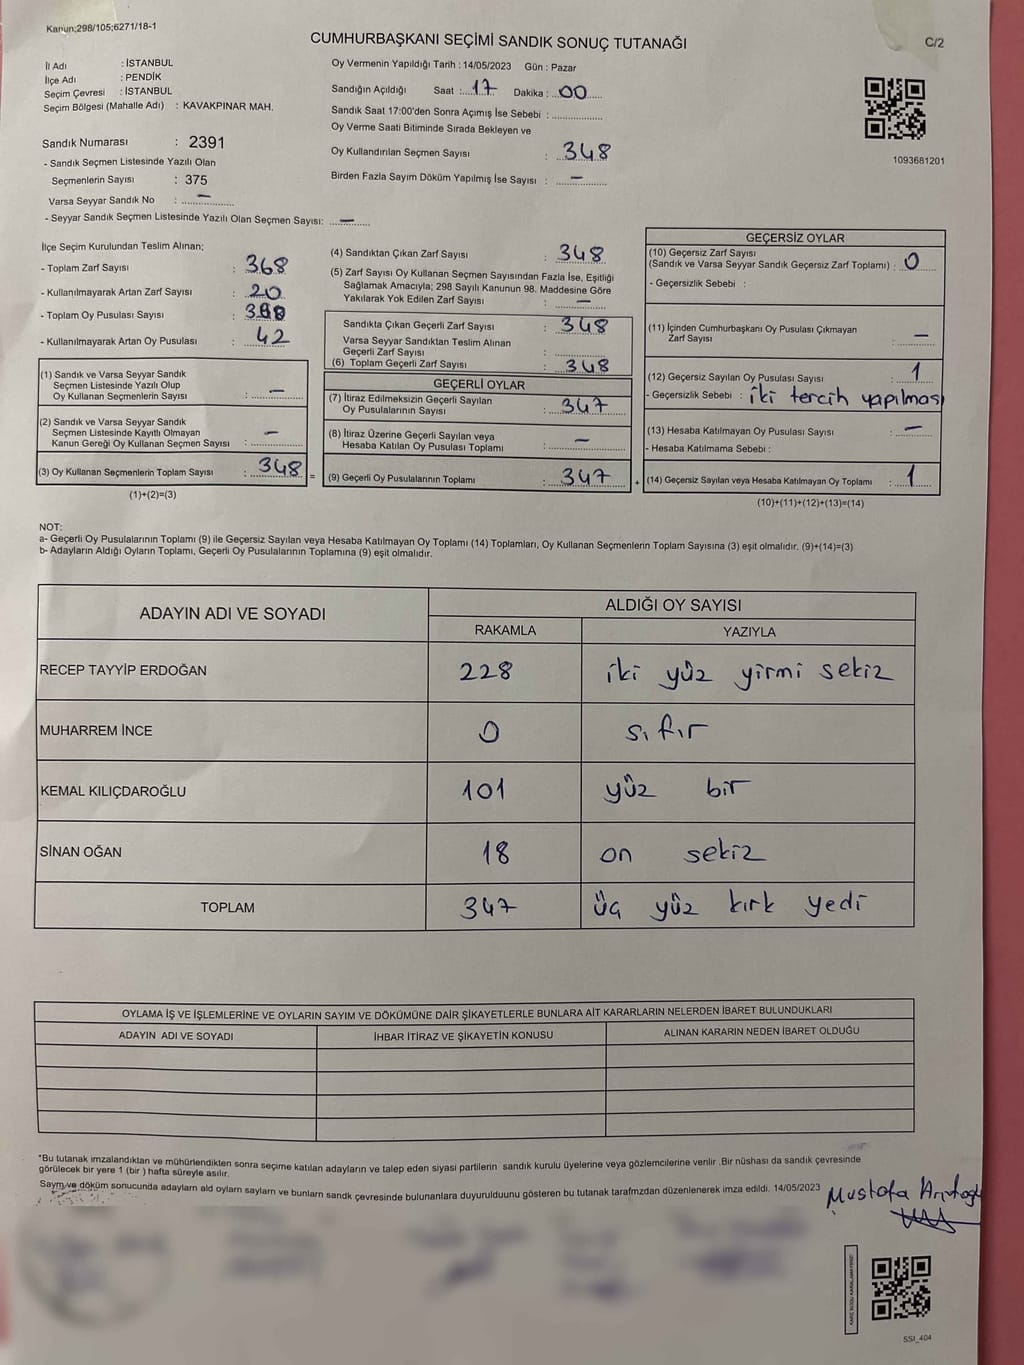 Kanun;298/105;6271/18-1
CUMHURBAŞKANI SEÇİMİ SANDIK SONUÇ TUTANAĞI
C/2
İl Adı : İSTANBUL
İlçe Adı : PENDİK
Seçim Çevresi : İSTANBUL
Seçim Bölgesi (Mahalle Adı) : KAVAKPINAR MAH.
Sandık Numarası : 2391
- Sandık Seçmen Listesinde Yazılı Olan
Seçmenlerin Sayısı : 375
Varsa Seyyar Sandık No : —
- Seyyar Sandık Seçmen Listesinde Yazılı Olan Seçmen Sayısı: —
Oy Vermenin Yapıldığı Tarih : 14/05/2023 Gün : Pazar
Sandığın Açıldığı Saat : 17 Dakika : 00
Sandık Saat 17:00'den Sonra Açımış İse Sebebi :
Oy Verme Saati Bitiminde Sırada Bekleyen ve
Oy Kullandırılan Seçmen Sayısı : 348
Birden Fazla Sayım Döküm Yapılmış İse Sayısı : —
1093681201
İlçe Seçim Kurulundan Teslim Alınan;
- Toplam Zarf Sayısı : 368
- Kullanılmayarak Artan Zarf Sayısı : 20
- Toplam Oy Pusulası Sayısı :
- Kullanılmayarak Artan Oy Pusulası : 42
(1) Sandık ve Varsa Seyyar Sandık
Seçmen Listesinde Yazılı Olup
Oy Kullanan Seçmenlerin Sayısı : —
(2) Sandık ve Varsa Seyyar Sandık
Seçmen Listesinde Kayıtlı Olmayan
Kanun Gereği Oy Kullanan Seçmen Sayısı : —
(3) Oy Kullanan Seçmenlerin Toplam Sayısı : 348 =
(1)+(2)=(3)
(4) Sandıktan Çıkan Zarf Sayısı : 348
(5) Zarf Sayısı Oy Kullanan Seçmen Sayısından Fazla İse, Eşitliği
Sağlamak Amacıyla; 298 Sayılı Kanunun 98. Maddesine Göre
Yakılarak Yok Edilen Zarf Sayısı : —
Sandıkta Çıkan Geçerli Zarf Sayısı : 348
Varsa Seyyar Sandıktan Teslim Alınan
Geçerli Zarf Sayısı :
(6) Toplam Geçerli Zarf Sayısı : 348
GEÇERLİ OYLAR
(7) İtiraz Edilmeksizin Geçerli Sayılan
Oy Pusulalarının Sayısı : 347
(8) İtiraz Üzerine Geçerli Sayılan veya
Hesaba Katılan Oy Pusulası Toplamı : —
(9) Geçerli Oy Pusulalarının Toplamı : 347 +
GEÇERSİZ OYLAR
(10) Geçersiz Zarf Sayısı
(Sandık ve Varsa Seyyar Sandık Geçersiz Zarf Toplamı) : 0
- Geçersizlik Sebebi :
(11) İçinden Cumhurbaşkanı Oy Pusulası Çıkmayan
Zarf Sayısı : —
(12) Geçersiz Sayılan Oy Pusulası Sayısı : 1
- Geçersizlik Sebebi : iki tercih yapılması
(13) Hesaba Katılmayan Oy Pusulası Sayısı : —
- Hesaba Katılmama Sebebi :
(14) Geçersiz Sayılan veya Hesaba Katılmayan Oy Toplamı : 1
(10)+(11)+(12)+(13)=(14)
NOT:
a- Geçerli Oy Pusulalarının Toplamı (9) ile Geçersiz Sayılan veya Hesaba Katılmayan Oy Toplamı (14) Toplamları, Oy Kullanan Seçmenlerin Toplam Sayısına (3) eşit olmalıdır. (9)+(14)=(3)
b- Adayların Aldığı Oyların Toplamı, Geçerli Oy Pusulalarının Toplamına (9) eşit olmalıdır.
ADAYIN ADI VE SOYADI ALDIĞI OY SAYISI
RAKAMLA YAZIYLA
RECEP TAYYİP ERDOĞAN 228 iki yüz yirmi sekiz
MUHARREM İNCE 0 sıfır
KEMAL KILIÇDAROĞLU 101 yüz bir
SİNAN OĞAN 18 on sekiz
TOPLAM 347 üç yüz kırk yedi
OYLAMA İŞ VE İŞLEMLERİNE VE OYLARIN SAYIM VE DÖKÜMÜNE DAİR ŞİKAYETLERLE BUNLARA AİT KARARLARIN NELERDEN İBARET BULUNDUKLARI
ADAYIN ADI VE SOYADI İHBAR İTİRAZ VE ŞİKAYETİN KONUSU ALINAN KARARIN NEDEN İBARET OLDUĞU
*Bu tutanak imzalandıktan ve mühürlendikten sonra seçime katılan adayların ve talep eden siyasi partilerin sandık kurulu üyelerine veya gözlemcilerine verilir .Bir nüshası da sandık çevresinde
görülecek bir yere 1 (bir ) hafta süreyle asılır.
Sayım ve döküm sonucunda adayların ald oyların sayları ve bunların sandk çevresinde bulunanlara duyurulduunu gösteren bu tutanak tarafmzdan düzenlenerek imza edildi. 14/05/2023
Mustafa
SSI_404